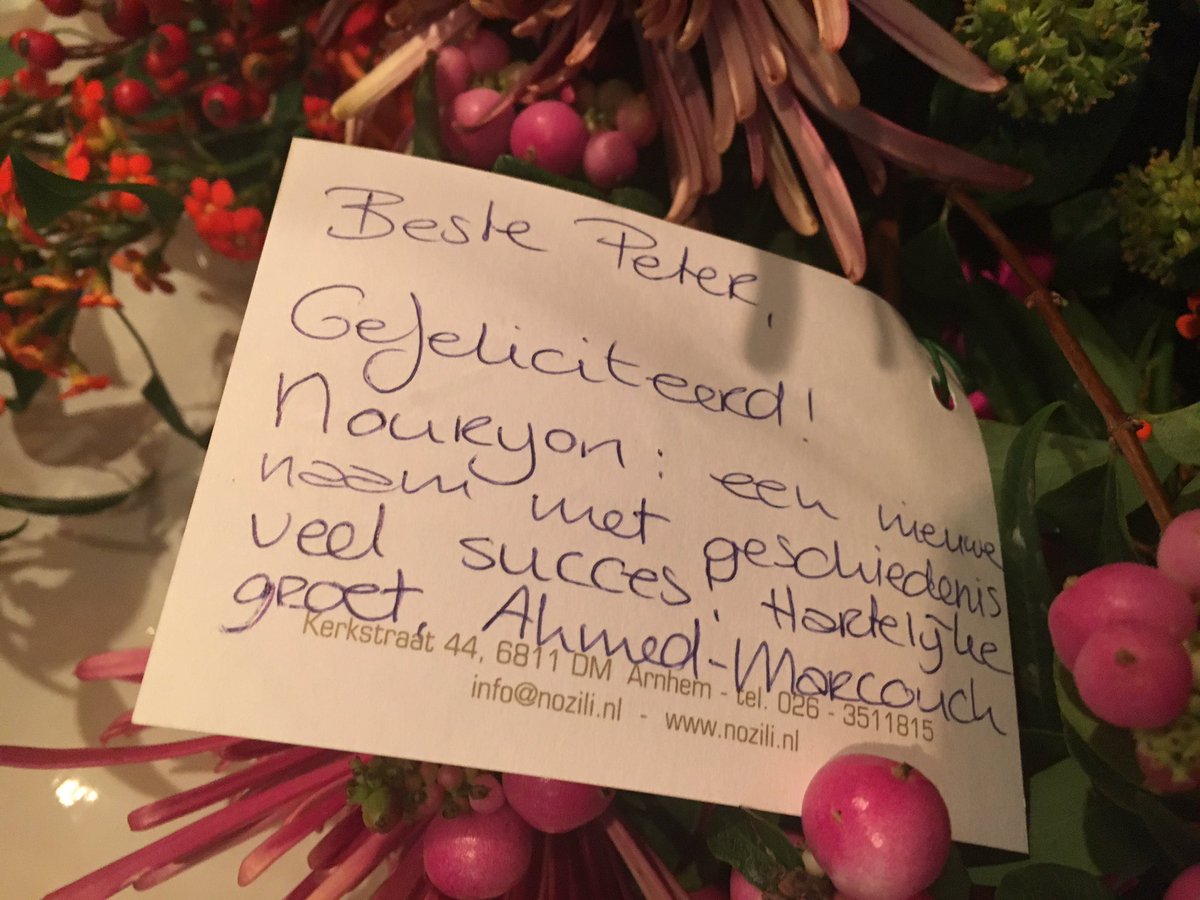 Beste Peter,
Gefeliciteerd!
Nouryon: een nieuwe
naam met geschiedenis
veel succes! Hartelijke
groet, Ahmed-Marcouch
Kerkstraat 44, 6811 DM Arnhem - tel. 026 - 3511815
info@nozili.nl - www.nozili.nl